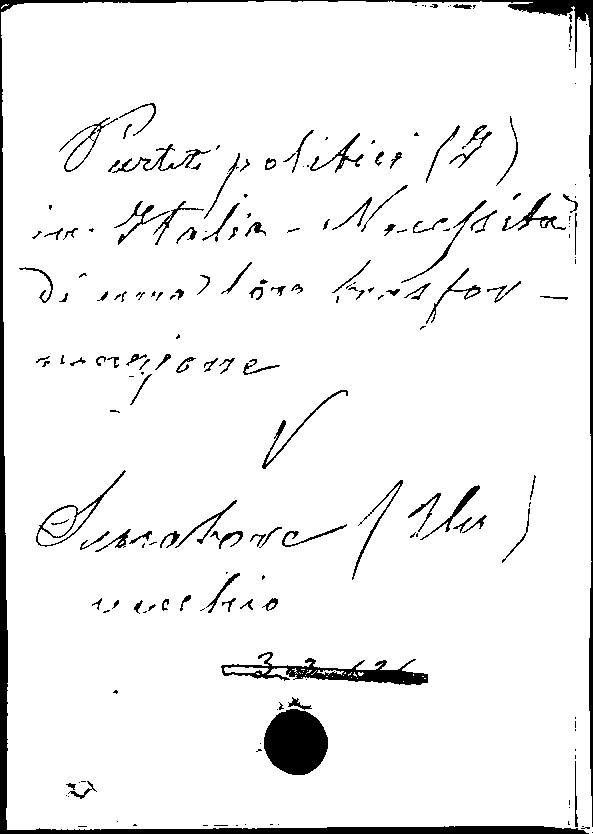 Partiti politici (I)
in Italia - Necessità
di una loro trasfor-
mazione
V
Senatore (Un)
vecchio